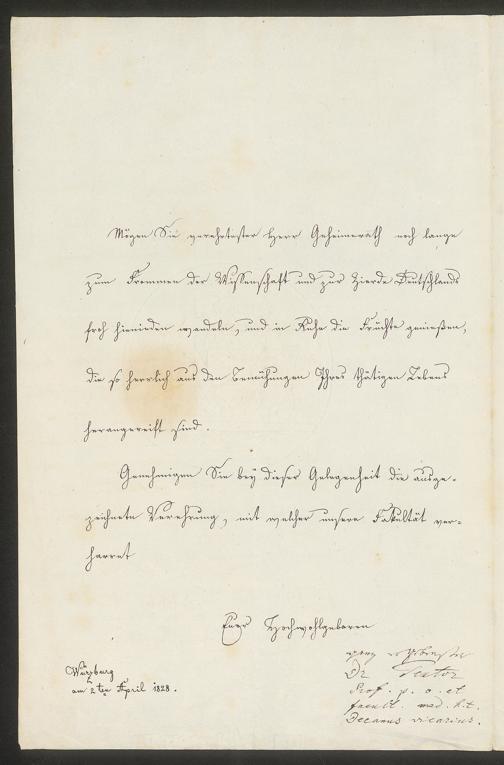 Mögen Sie verehrtester Herr Geheimerath noch lange
zum Frommen der Wissenschaft und zur Zierde Deutschlands
froh hienieden wandeln, und in Ruhe die Früchte genießen,
die so herrlich aus den Bemühungen Ihres thätigen Lebens
herangereift sind.
Genehmigen Sie bey dieser Gelegenheit die ausge-
zeichnete Verehrung, mit welcher unsere Fakultät ver-
harret
Euer Hochwohlgeboren
ganz
Würzburg
am 2ten April 1828.
Dr Textor
Prof. p. o. et
facult. med. h.t.
Decanus vicarius.